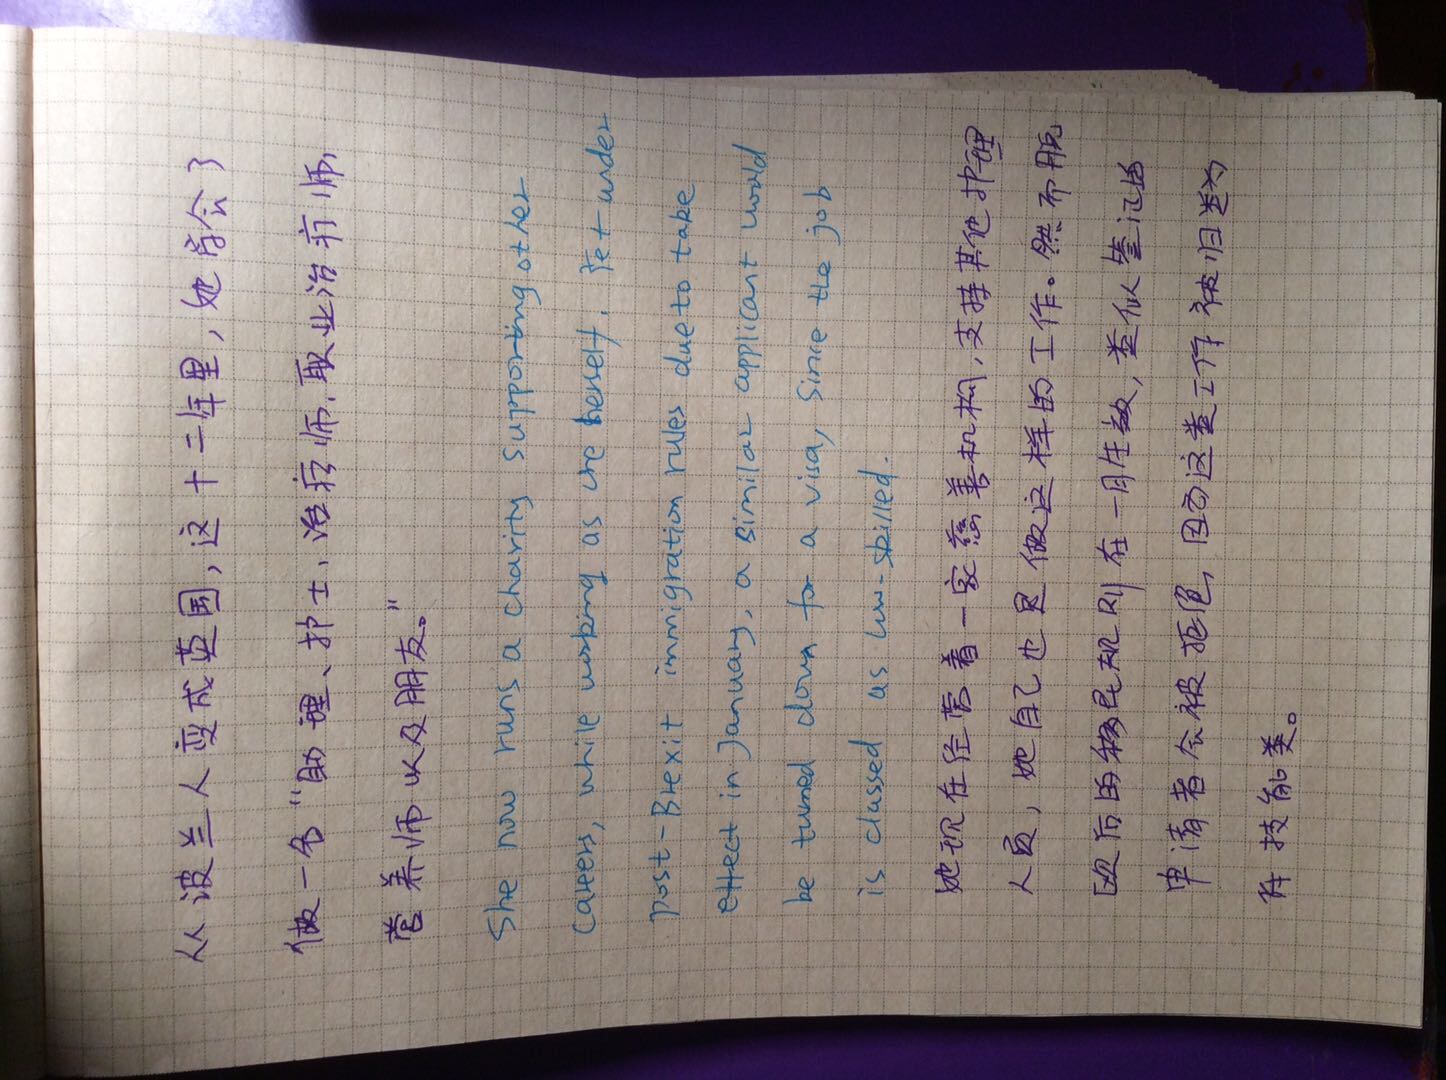 从波兰人变成英国,这十二年里,她学会了
做一名“助理、护士、治疗师、职业治疗师,
营养师以及朋友。”
She now runs a charity supporting other
careers, while working as one herself. Yet under
post-Brexit immigration rules due to take
effect in January, a similar applicant would
be turned down for a visa, since the job
is classed as un-skilled.
她现在经营着一家慈善机构,支持其他护理
人员,她自己也是做这样的工作。然而脱
欧后的移民规则在一月生效,类似签证的
申请者会被拒绝,因为这类工作被归类为
非技能类。